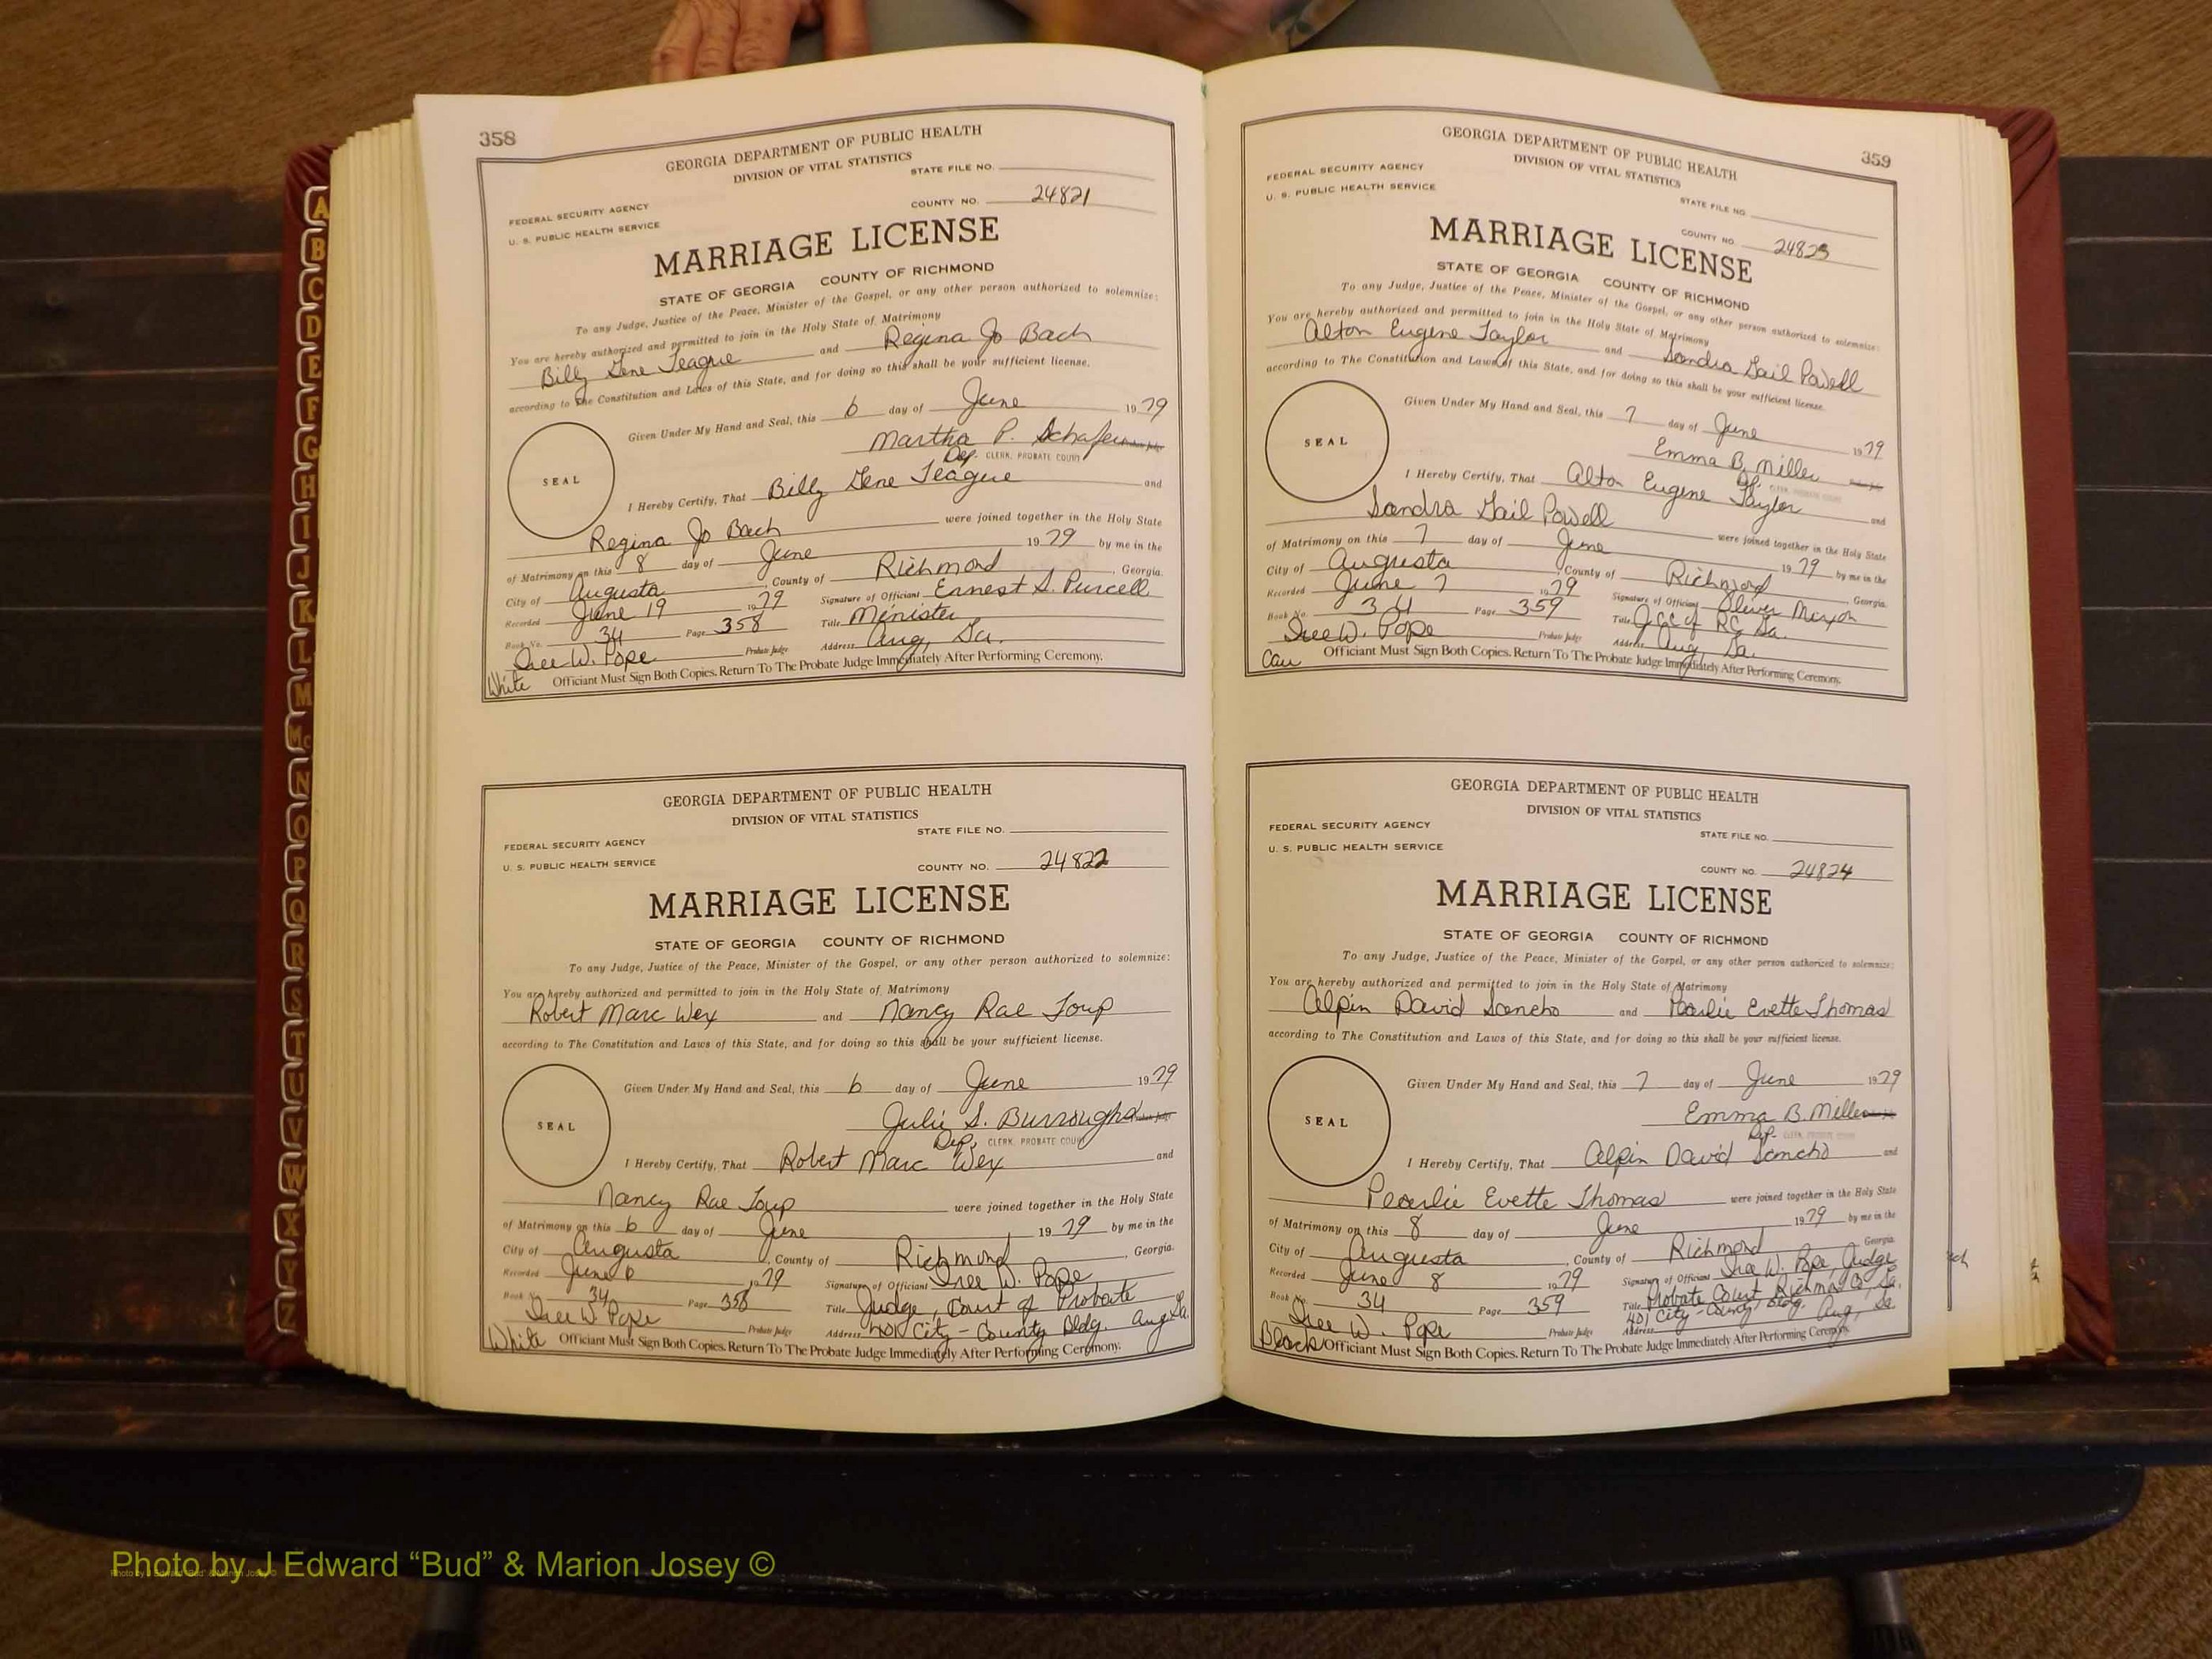 358
GEORGIA DEPARTMENT OF PUBLIC HEALTH
DIVISION OF VITAL STATISTICS
STATE FILE NO.
FEDERAL SECURITY AGENCY
COUNTY NO. 24821
U. S. PUBLIC HEALTH SERVICE
MARRIAGE LICENSE
STATE OF GEORGIA COUNTY OF RICHMOND
To any Judge, Justice of the Peace, Minister of the Gospel, or any other person authorized to solemnize:
You are hereby authorized and permitted to join in the Holy State of Matrimony
Billy Gene Teague and Regina Jo Bach
according to The Constitution and Laws of this State, and for doing so this shall be your sufficient license.
Given Under My Hand and Seal, this 6 day of June 1979
Martha P. Schafer Probate Judge
Dep. CLERK, PROBATE COURT
SEAL
I Hereby Certify, That Billy Gene Teague and
Regina Jo Bach were joined together in the Holy State
of Matrimony on this 8 day of June 1979 by me in the
City of Augusta, County of Richmond, Georgia.
Recorded June 19 1979 Signature of Officiant Ernest S. Purcell
Book No. 34 Page 358 Title Minister
Iree W. Pope Probate Judge Address Aug, Ga.
White Officiant Must Sign Both Copies. Return To The Probate Judge Immediately After Performing Ceremony.
GEORGIA DEPARTMENT OF PUBLIC HEALTH
DIVISION OF VITAL STATISTICS
STATE FILE NO.
FEDERAL SECURITY AGENCY
U. S. PUBLIC HEALTH SERVICE
COUNTY NO. 24822
MARRIAGE LICENSE
STATE OF GEORGIA COUNTY OF RICHMOND
To any Judge, Justice of the Peace, Minister of the Gospel, or any other person authorized to solemnize:
You are hereby authorized and permitted to join in the Holy State of Matrimony
Robert Marc Wex and Nancy Rae Toup
according to The Constitution and Laws of this State, and for doing so this shall be your sufficient license.
Given Under My Hand and Seal, this 6 day of June 1979
Julie S. Burroughs Probate Judge
Dep. CLERK, PROBATE COURT
SEAL
I Hereby Certify, That Robert Marc Wex and
Nancy Rae Toup were joined together in the Holy State
of Matrimony on this 6 day of June 1979 by me in the
City of Augusta, County of Richmond, Georgia.
Recorded June 6 1979 Signature of Officiant Iree W. Pope
Book No. 34 Page 358 Title Judge, Court of Probate
Iree W. Pope Probate Judge Address 401 City-County Bldg. Aug Ga.
White Officiant Must Sign Both Copies. Return To The Probate Judge Immediately After Performing Ceremony.
359
GEORGIA DEPARTMENT OF PUBLIC HEALTH
DIVISION OF VITAL STATISTICS
FEDERAL SECURITY AGENCY
U. S. PUBLIC HEALTH SERVICE
STATE FILE NO.
COUNTY NO. 24823
MARRIAGE LICENSE
STATE OF GEORGIA COUNTY OF RICHMOND
To any Judge, Justice of the Peace, Minister of the Gospel, or any other person authorized to solemnize:
You are hereby authorized and permitted to join in the Holy State of Matrimony
Alton Eugene Taylor and Sandra Gail Powell
according to The Constitution and Laws of this State, and for doing so this shall be your sufficient license.
Given Under My Hand and Seal, this 7 day of June 1979
Emma B. Miller Probate Judge
Dp. CLERK, PROBATE COURT
SEAL
I Hereby Certify, That Alton Eugene Taylor and
Sandra Gail Powell were joined together in the Holy State
of Matrimony on this 7 day of June 1979 by me in the
City of Augusta, County of Richmond Georgia.
Recorded June 7 1979 Signature of Officiant Oliver Mixon
Book No. 34 Page 359 Title RC Ga.
Iree W. Pope Probate Judge Address Aug, Ga.
Cau Officiant Must Sign Both Copies. Return To The Probate Judge Immediately After Performing Ceremony.
GEORGIA DEPARTMENT OF PUBLIC HEALTH
DIVISION OF VITAL STATISTICS
FEDERAL SECURITY AGENCY
STATE FILE NO.
U. S. PUBLIC HEALTH SERVICE
COUNTY NO. 24824
MARRIAGE LICENSE
STATE OF GEORGIA COUNTY OF RICHMOND
To any Judge, Justice of the Peace, Minister of the Gospel, or any other person authorized to solemnize:
You are hereby authorized and permitted to join in the Holy State of Matrimony
Alpin David Sancho and Pearlie Evette Thomas
according to The Constitution and Laws of this State, and for doing so this shall be your sufficient license.
Given Under My Hand and Seal, this 7 day of June 1979
Emma B. Miller
Dep. CLERK, PROBATE COURT
SEAL
I Hereby Certify, That Alpin David Sancho and
Pearlie Evette Thomas were joined together in the Holy State
of Matrimony on this 8 day of June 1979 by me in the
City of Augusta, County of Richmond Georgia.
Recorded June 8 1979 Signature of Officiant Iree W. Pope, Judge
Book No. 34 Page 359 Title Probate Court Richmond Co, Ga.
Iree W. Pope Probate Judge Address 401 City-County Bldg. Aug, Ga
Black Officiant Must Sign Both Copies. Return To The Probate Judge Immediately After Performing Ceremony.
A
B
C
D
E
F
G
H
I
J
K
L
M
Mc
N
O
P
Q
R
S
T
U
V
W
X
Y
Z
Photo by J Edward “Bud” & Marion Josey ©